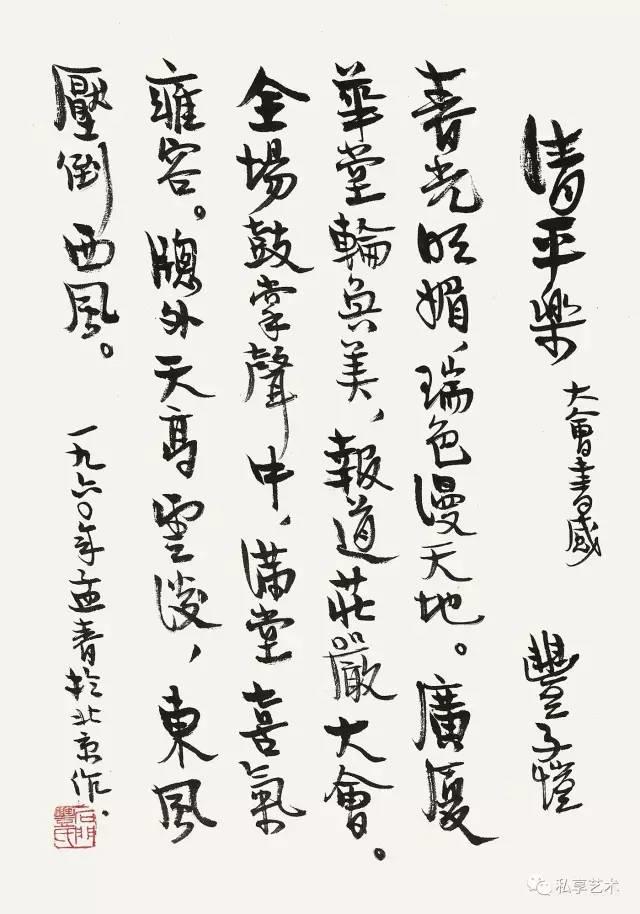 清平樂 大會書感 豐子愷
春光明媚,瑞色漫天地。廣廈
華堂輪奐美,報道莊嚴大會。
全場鼓掌聲中,滿堂喜氣
雍容。牕外天高雲淡,東風
壓倒西風。
一九六〇年孟春於北京作.
石門豐氏
私享艺术